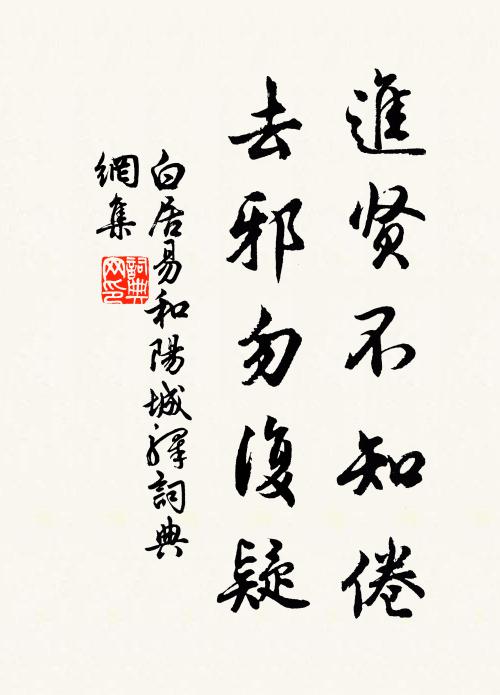 進贤不知倦
去邪勿復疑
白居易和陽城驛詞典
網集
詞典
网印